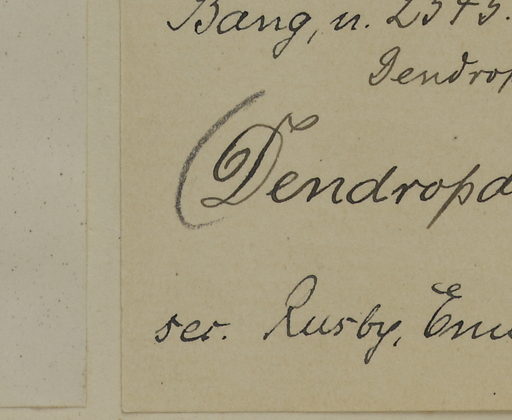 Bang, n. 2343.
Dendrop
(Dendropa
sec. Rusby, Enu